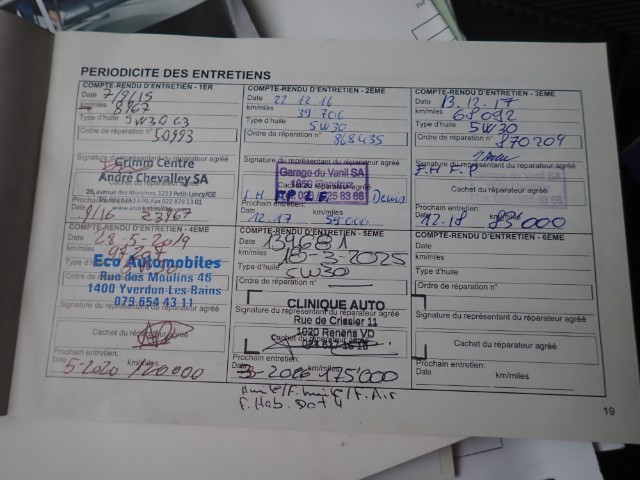 PERIODICITE DES ENTRETIENS
COMPTE-RENDU D'ENTRETIEN - 1ER
Date 7/9/15
km/miles 3967
Type d'huile 5W30 C3
Ordre de réparation n° 50993
Signature du représentant du réparateur agréé
Centre
André Chevalley SA
Cachet du réparateur
Prochain entretien:
Date 9/16 km/miles 23967
COMPTE-RENDU D'ENTRETIEN - 2EME
Date 22.12.16
km/miles 39706
Type d'huile 5W30
Ordre de réparation n° 868435
Signature du représentant du réparateur agréé
Garage du Vanil SA
Cachet du réparateur agréé
Prochain entretien:
Date 12.17 km/miles 59000
COMPTE-RENDU D'ENTRETIEN - 3EME
Date 13.12.17
km/miles 68092
Type d'huile 5W30
Ordre de réparation n° 870204
Signature du représentant du réparateur agréé
F.H F.P
Cachet du réparateur agréé
Prochain entretien:
Date 12-18 km/miles 85000
COMPTE-RENDU D'ENTRETIEN - 4EME
Date 28-5-2019
km/miles
Type d'huile 5W30
Eco Automobiles
Rue des Moulins 46
1400 Yverdon-Les-Bains
079 654 43 11
Cachet du réparateur agréé
Prochain entretien:
Date 5-2020 km/miles 120000
COMPTE-RENDU D'ENTRETIEN - 5EME
Date 139681
km/miles 18-3-2025
Type d'huile 5W30
Ordre de réparation n°
Signature du représentant du réparateur agréé
CLINIQUE AUTO
Rue de Crissier 11
1020 Renens VD
Cachet du réparateur agréé
Prochain entretien:
Date 3-2026 km/miles 175'000
COMPTE-RENDU D'ENTRETIEN - 6EME
Date
km/miles
Type d'huile
Ordre de réparation n°
Signature du représentant du réparateur agréé
Cachet du réparateur agréé
Prochain entretien:
Date km/miles
F. Air
F. Hab. Dot 4
19